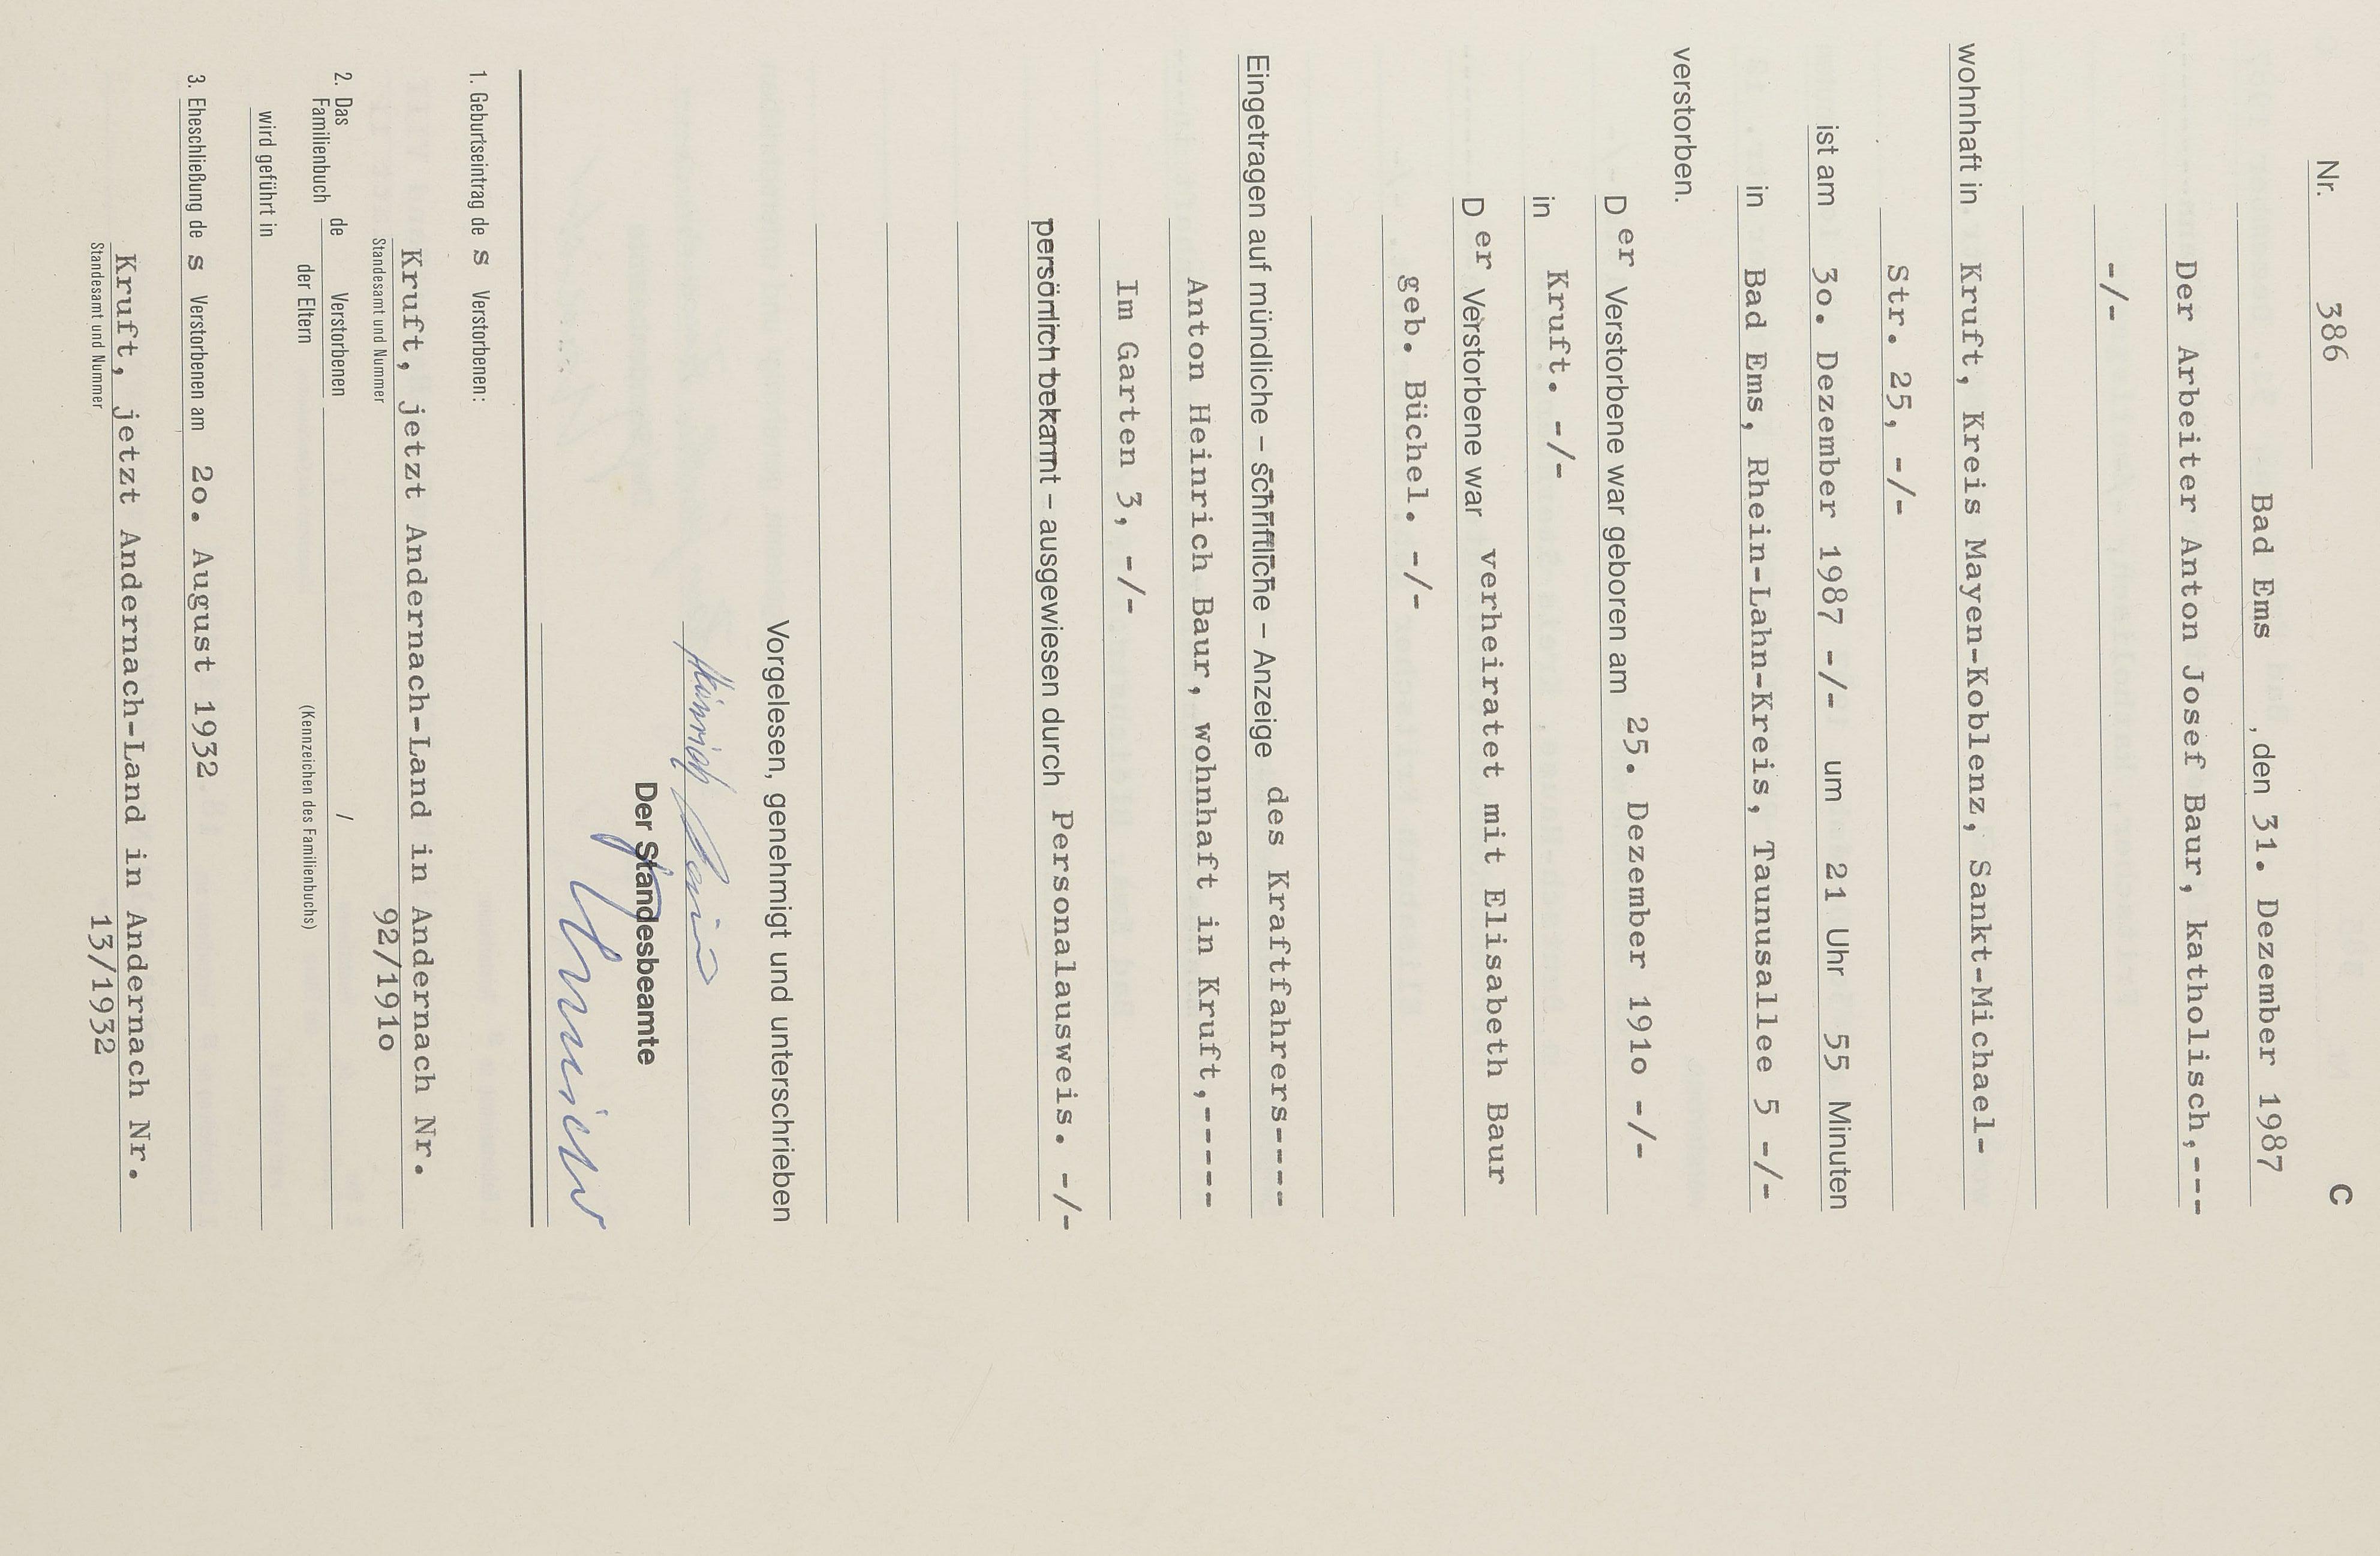 C
Nr. 386
Bad Ems , den 31. Dezember 1987
Der Arbeiter Anton Josef Baur, katholisch,---
-/-
wohnhaft in Kruft, Kreis Mayen-Koblenz, Sankt-Michael-
Str. 25, -/-
ist am 3o. Dezember 1987 -/- um 21 Uhr 55 Minuten
in Bad Ems, Rhein-Lahn-Kreis, Taunusallee 5 -/-
verstorben.
D er Verstorbene war geboren am 25. Dezember 191o -/-
in Kruft. -/-
D er Verstorbene war verheiratet mit Elisabeth Baur
geb. Büchel. -/-
Eingetragen auf mündliche – schriftliche – Anzeige des Kraftfahrers----
Anton Heinrich Baur, wohnhaft in Kruft,-----
Im Garten 3, -/-
persönlich bekannt – ausgewiesen durch Personalausweis. -/-
Vorgelesen, genehmigt und unterschrieben
Heinrich Baur
Der Standesbeamte
1. Geburtseintrag de s Verstorbenen:
Kruft, jetzt Andernach-Land in Andernach Nr.
Standesamt und Nummer 92/191o
2. Das Familienbuch de Verstorbenen /
der Eltern (Kennzeichen des Familienbuchs)
wird geführt in
3. Eheschließung de s Verstorbenen am 2o. August 1932
Kruft, jetzt Andernach-Land in Andernach Nr.
Standesamt und Nummer 13/1932